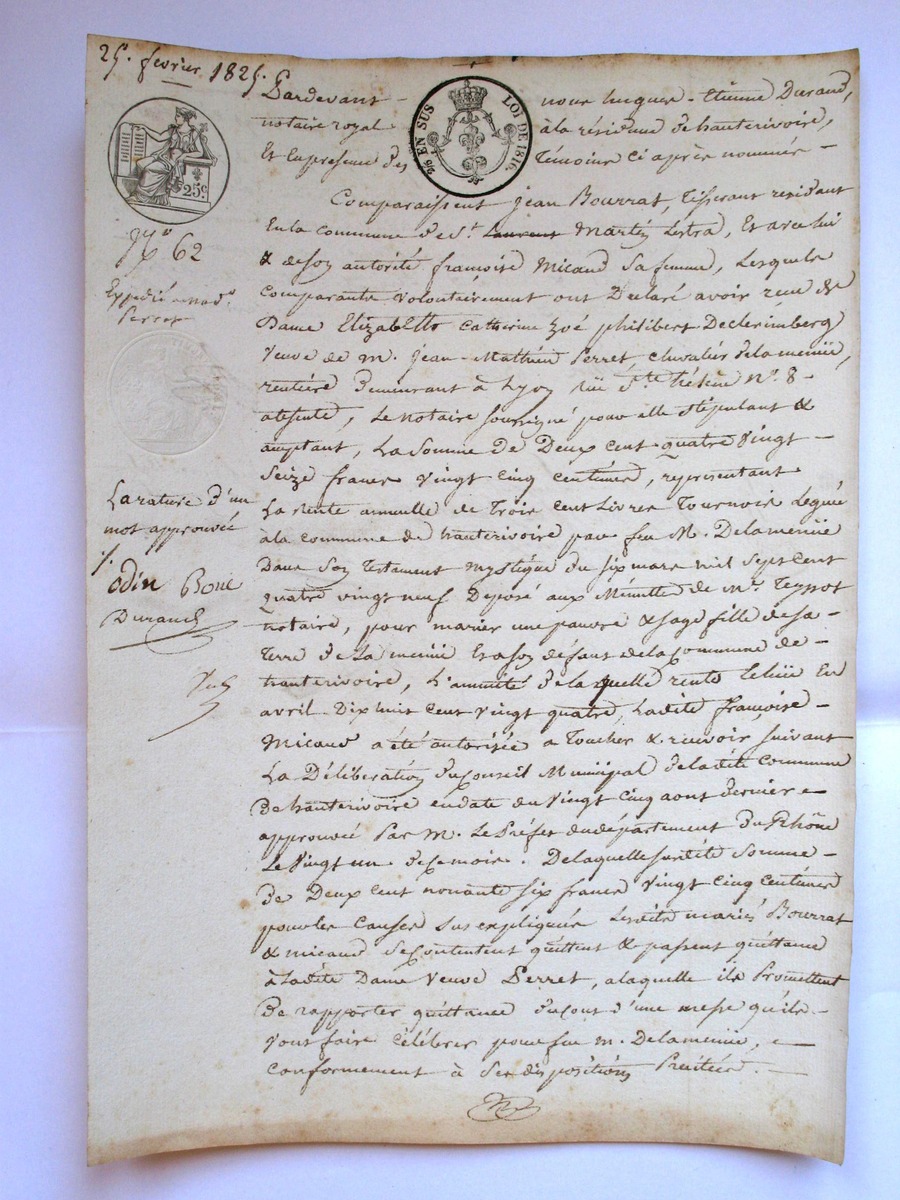 25. fevrier 1825.
Pardevant - nous hugues - Etienne Durand,
notaire royal à la résidence de hauterivoire,
Et En presence des Témoins ci après nommés -
EN SUS LOI DE 1816.
25c
N.º 62
Expedié a mad.e
Perret
Comparaissent jean Bourrat, tisserant residant
En la commune de St. Laurent Martin Lestra, Et avec lui
& de son autorité françoise Micaud sa femme, Lesquels
comparants volontairement ont Declaré avoir recu de
Dame Elizabeth catherine Zoé philibert Declerimberg
veuve de M. jean-Mathieu Perret chevalier delamenüe,
rentière Demeurant à Lyon rüe Ste. hélène N.º 8 -
absente, Le notaire soussigné pour elle stipulant &
acceptant, La Somme de Deux cent quatre vingt -
seize francs vingt cinq centimes, représentant
La rente annuelle de Trois cent Livres Tournois Leguée
à la commune de hauterivoire par feu M. Delamenüe
Dans son Testament mystique du six mars mil sept cent
quatre vingt neuf Déposé aux Minuttes de Me. Teyssot
notaire, pour marier une pauvre & sage fille de sa
Terre de La menüe Et a son défaut de la commune de -
hauterivoire, L'annuité de laquelle rente échüe En
avril Dix huit cent vingt quatre, Ladite françoise -
Micaud a été autorisée a Toucher & recevoir suivant
La Déliberation du Conseil Municipal de ladite commune
De hauterivoire en date du vingt cinq aout dernier
approuvée Par M. Le Préfet du département du Rhône
Le vingt un de ce mois. De laquelle susdite somme -
De Deux cent nonante six francs vingt cinq centimes
pour les causes sus expliquées Lesdits mariés Bourrat
& micaud se contentent quittent & passent quittance
à Ladite Dame veuve Perret, a laquelle ils Promettent
De rapporter quittance du cout d'une messe qu'ils -
vont faire célébrer pour feu m. Delamenüe,
conformement à ses dispositions Précitées. -
La rature d'un
mot approuvée
odin Boue
Durand